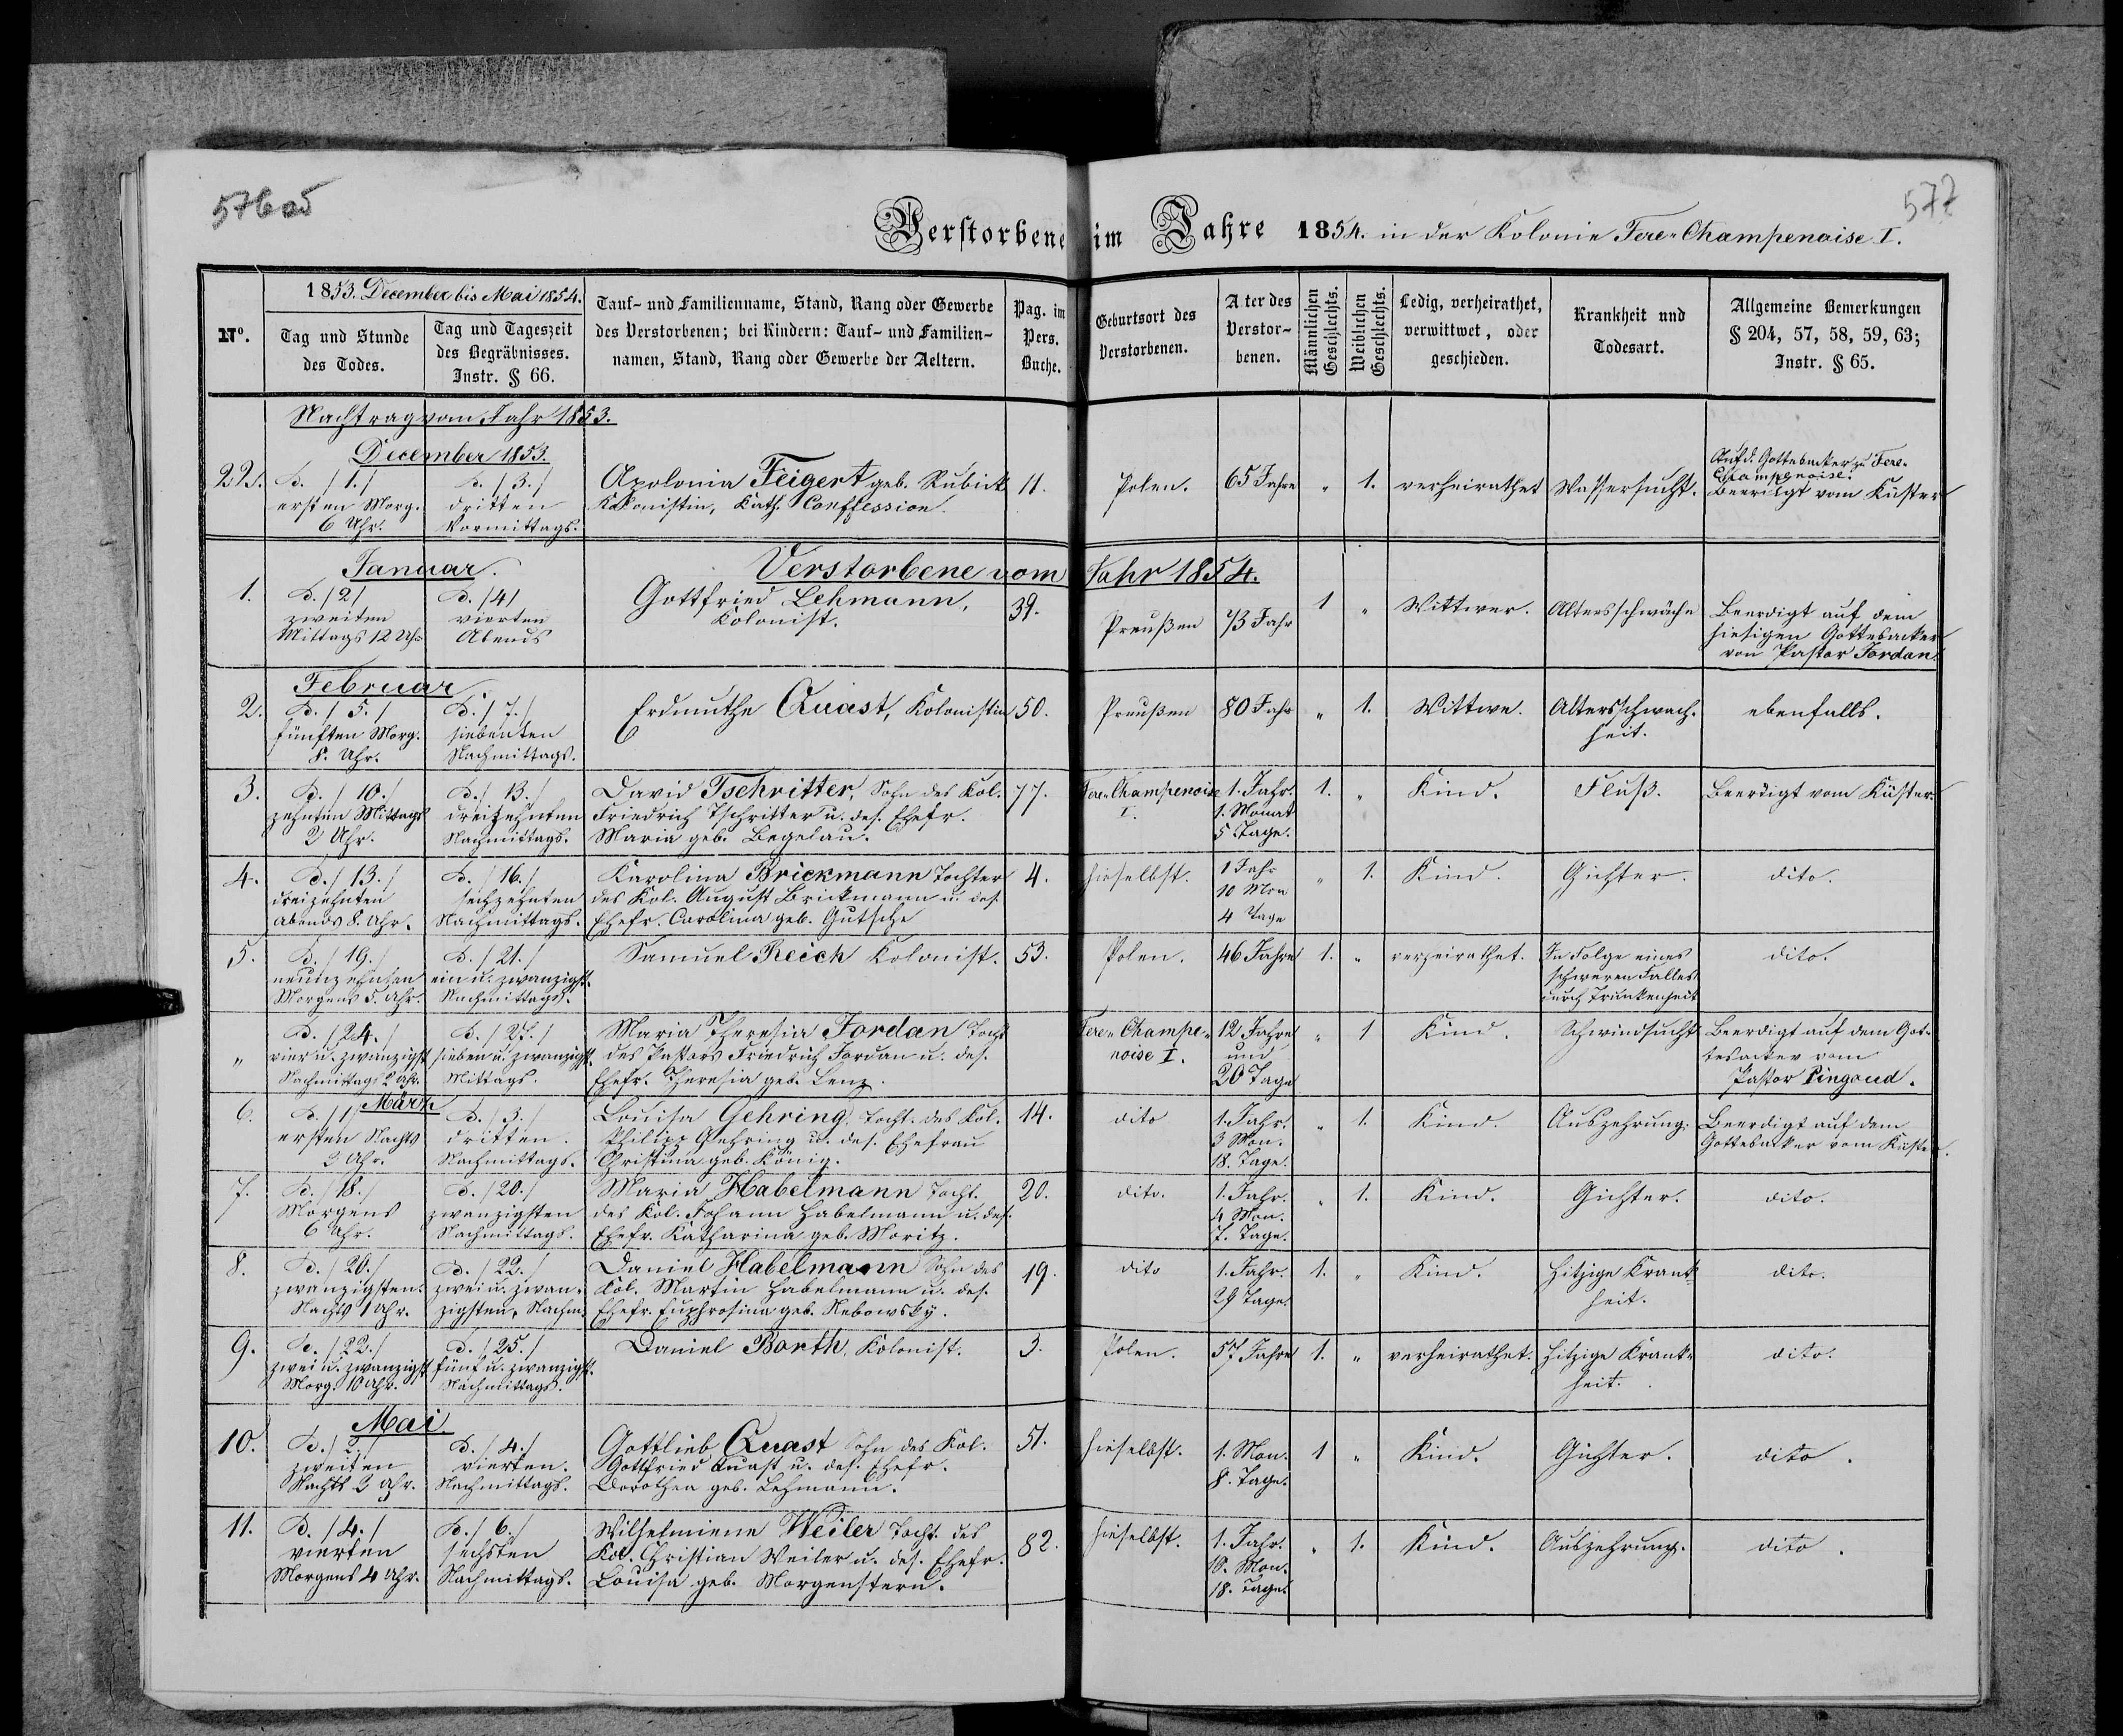 576 об
577
Verstorbene im Jahre 1854. in der Kolonie Fere-Champenoise I.
1853. December bis Mai 1854.
No.
Tag und Stunde
des Todes.
Tag und Tageszeit
des Begräbnisses.
Instr. § 66.
Tauf- und Familienname, Stand, Rang oder Gewerbe
des Verstorbenen; bei Kindern: Tauf- und Familien-
namen, Stand, Rang oder Gewerbe der Aeltern.
Pag. im
Pers.
Buche.
Geburtsort des
Verstorbenen.
A ter des
Verstor-
benen.
Männlichen
Geschlechts.
Weiblichen
Geschlechts.
Ledig, verheirathet,
verwittwet, oder
geschieden.
Krankheit und
Todesart.
Allgemeine Bemerkungen
§ 204, 57, 58, 59, 63;
Instr. § 65.
Nachtrag vom Jahr 1853.
December 1853.
22.
D. /1./
ersten Morg.
6 Uhr.
D. /3./
dritten
Vormittags.
Apolonia Feigert geb. Rubick
Kolonistin, Kath. Confession.
11.
Polen.
65 Jahre
"
1.
verheirathet
Wassersucht.
Auf d. Gottesacker zu Fere-
Champenoise.
Beerdigt vom Küster
Verstorbene vom Jahr 1854.
Januar.
1.
D. /2/
zweiten
Mittags 12 Uhr
D. /4/
vierten
Abends
Gottfried Lehmann,
Kolonist.
39.
Preußen
73 Jahr
1
"
Wittwer.
Altersschwäche
Beerdigt auf dem
hiesigen Gottesacker
von Pastor Jordan.
Februar
2.
D. /5./
fünften Morg.
8. Uhr.
D. /7./
siebenten
Nachmittags.
Erdmuthe Quast, Kolonistin
50.
Preußen
80 Jahr
"
1.
Wittwe.
Altersschwach-
heit.
ebenfalls.
3.
D. /10./
zehnten Mittags
2 Uhr.
D. /13./
dreizehnten
Nachmittags.
David Tschritter, Sohn des Kol.
Friedrich Tschritter u. des. Ehefr.
Maria geb. Begelau.
77.
Fere-Champenoise
I.
1. Jahr.
1. Monat
5 Tage.
1.
"
Kind.
Fluß.
Beerdigt vom Küster.
4.
D. /13./
dreizehnten
Abends 8. Uhr.
D. /16./
sechzehnten
Nachmittags.
Karolina Brickmann Tochter
des Kol. August Brickmann u. des.
Ehefr. Carolina geb. Gutsche
4.
hieselbst.
1 Jahr
10 Mon
4 Tage
"
1.
Kind.
Gichter.
dito.
5.
D. /19./
neunzehnten
Morgens 5. Uhr.
D. /21./
ein u. zwanzigst.
Nachmittags.
Samuel Reich Kolonist.
53.
Polen.
46 Jahre
1.
"
verheirathet.
In Folge eines
schweren Falles
durch Trunkenheit
dito.
"
D. /24./
vier u. zwanzigst
Nachmittag 2 Uhr.
D. /27./
sieben u. zwanzigst.
Mittags.
Maria Theresia Jordan Toch
des Pastors Friedrich Jordan u. des.
Ehefr. Theresia geb. Lenz.
Fere-Champe-
noise I.
12 Jahre
und
20 Tage
"
1
Kind.
Schwindsucht
Beerdigt auf dem Got-
tesacker vom
Pastor Pingoud.
März
6.
D. /1/
ersten Nachts
2 Uhr.
D. /3./
dritten.
Nachmittags.
Louisa Gehring, Toch. des Kol.
Philipp Gehring u. des. Ehefrau
Christina geb. König.
14.
dito
1. Jahr.
3 Mon.
18. Tage.
"
1.
Kind.
Auszehrung.
Beerdigt auf dem
Gottesacker vom Küster.
7.
D. /18./
Morgens
6 Uhr.
D. /20./
zwanzigsten
Nachmittags.
Maria Habelmann Toch.
des Kol. Johann Habelmann u. des.
Ehefr. Katharina geb. Moritz.
20.
dito.
1. Jahr.
4 Mon.
7. Tage.
"
1.
Kind.
Gichter.
dito.
8.
D. /20./
zwanzigsten.
Nachts 1 Uhr.
D. /22./
zwei u. zwan-
zigsten, Nachm.
Daniel Habelmann Sohn des
Kol. Martin Habelmann u. des.
Ehefr. Euphrosina geb. Nebowsky.
19.
dito
1. Jahr.
29 Tage.
1.
"
Kind.
Hitzige Krank-
heit.
dito.
9.
D. /22./
zwei u. zwanzigst
Morg. 10 Uhr.
D. /25./
fünf u. zwanzigst.
Nachmittags.
Daniel Barth, Kolonist.
3.
Polen.
57 Jahre
1.
"
verheirathet.
Hitzige Krank-
heit.
dito.
Mai.
10.
D. /2./
zweiten
Nachts 2 Uhr.
D. /4./
vierten.
Nachmittags.
Gottlieb Quast Sohn des Kol.
Gottfried Quast u. des. Ehefr.
Dorothea geb. Lehmann.
51.
hieselbst.
1. Mon.
8. Tage.
1
"
Kind.
Gichter.
dito.
11.
D. /4./
vierten
Morgens 4 Uhr.
D. /6./
sechsten
Nachmittags.
Wilhelmiene Weiler Toch. des
Kol. Christian Weiler u. des. Ehefr.
Louisa geb. Morgenstern.
82.
hieselbst.
1. Jahr.
10. Mon.
18. Tage.
"
1.
Kind.
Auszehrung.
dito.